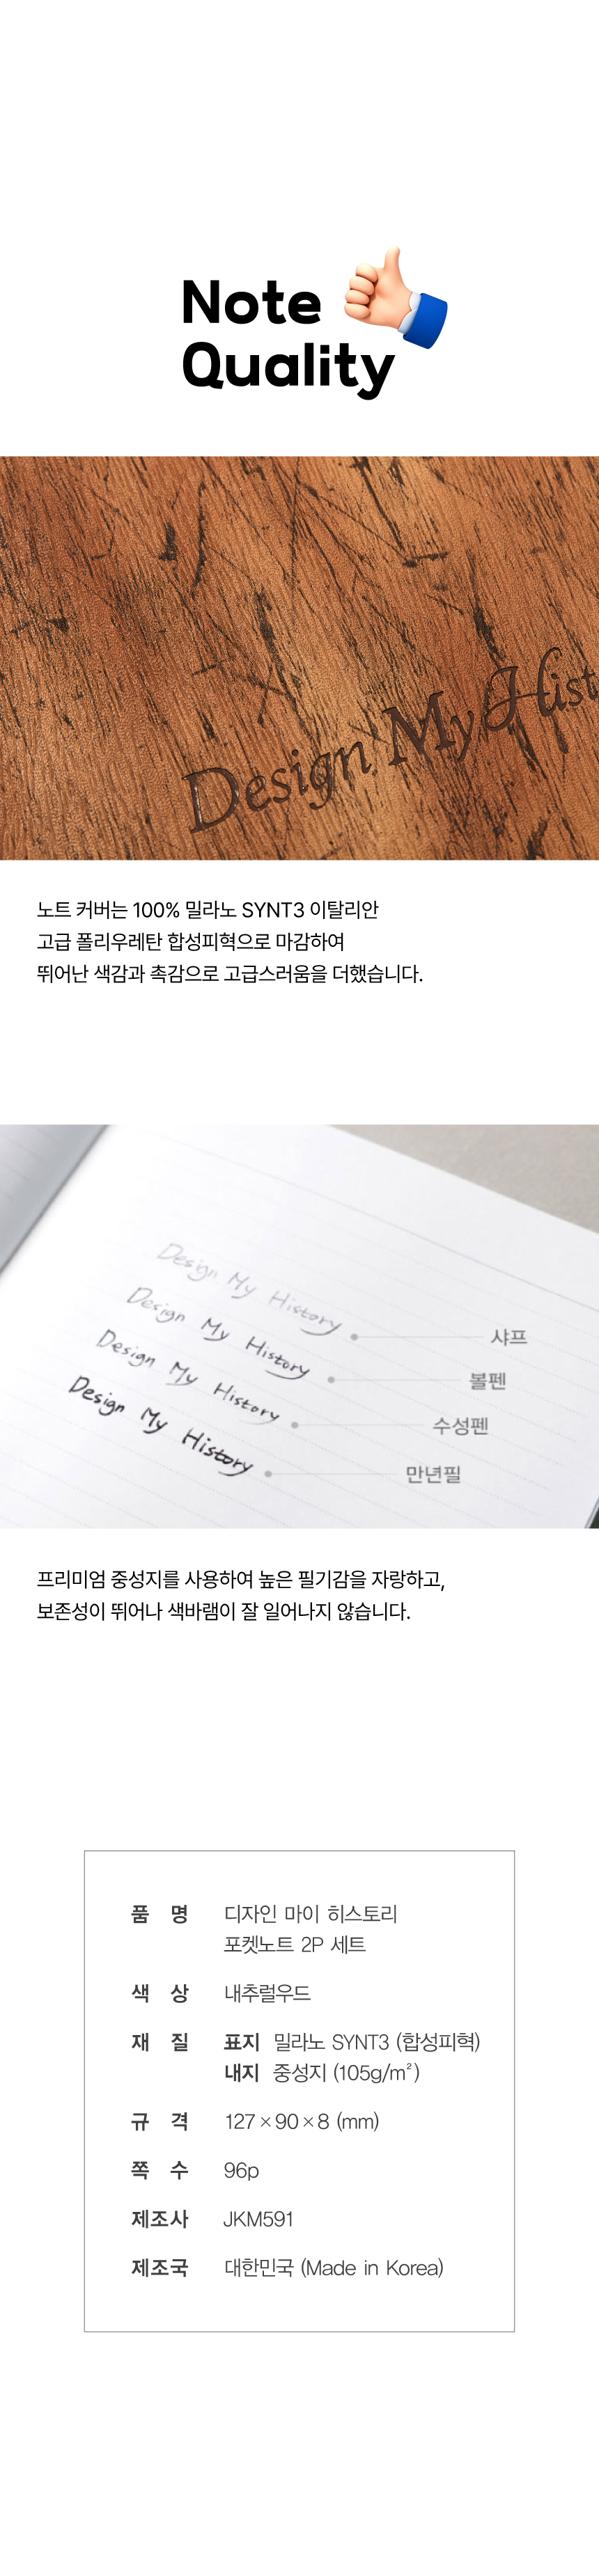 Note
Quality
Design My Hist
노트 커버는 100% 밀라노 SYNT3 이탈리안
고급 폴리우레탄 합성피혁으로 마감하여
뛰어난 색감과 촉감으로 고급스러움을 더했습니다.
Design My History 샤프
Design My History 볼펜
Design My History 수성펜
Design My History 만년필
프리미엄 중성지를 사용하여 높은 필기감을 자랑하고,
보존성이 뛰어나 색바램이 잘 일어나지 않습니다.
품 명 디자인 마이 히스토리
포켓노트 2P 세트
색 상 내추럴우드
재 질 표지 밀라노 SYNT3 (합성피혁)
내지 중성지 (105g/m²)
규 격 127×90×8 (mm)
쪽 수 96p
제조사 JKM591
제조국 대한민국 (Made in Korea)